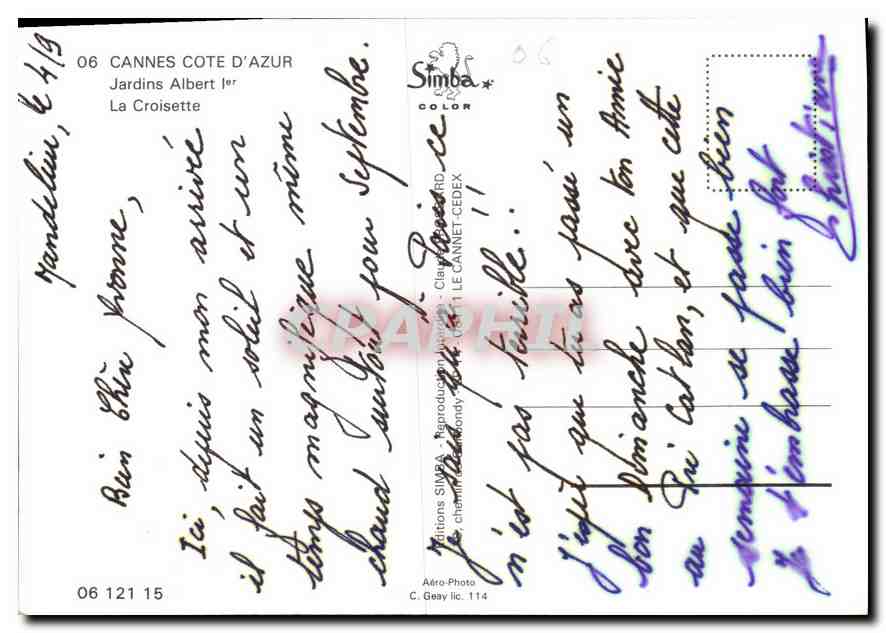 06 CANNES COTE D'AZUR
Jardins Albert Ier
La Croisette
Simba
COLOR
06
Mandelieu, le 4/9
Bien Chère Yvonne,
Ici, depuis mon arrivée
il fait un soleil et un
temps magnifique même
chaud surtout pour Septembre.
Je sais qu'à Paris ce
n'est pas terrible!!
J'espère que tu as passé un
bon Dimanche avec ton Amie
au Pré Catelan, et que cette
semaine se passe bien
Je t'embrasse bien fort
Christiane
Editions SIMBA - Reproduction interdite - Claude
06111 LE CANNET-CEDEX
CPAPHIL
06 121 15
Aéro-Photo
C. Geay lic. 114